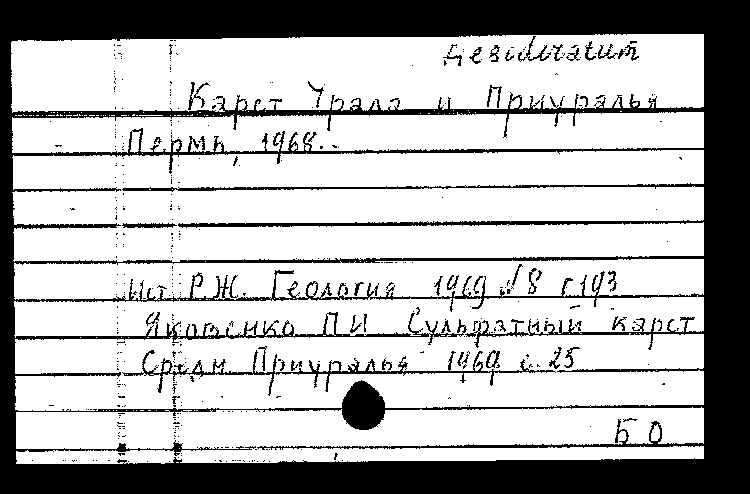 Desideratum
Карст Урала и Приуралья
Пермь, 1968.
Ист. Р.Ж. Геология 1969 №8 Г193
Яковенко П И Сульфатный карст
Средн Приуралья 1969 с. 25
Б О